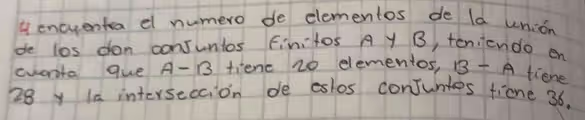 4 encuentra el numero de elementos de la unión
de los don conjuntos finitos A y B, teniendo en
cuenta que A-B tiene 20 elementos, B-A tiene
28 y la intersección de estos conjuntos tiene 36.